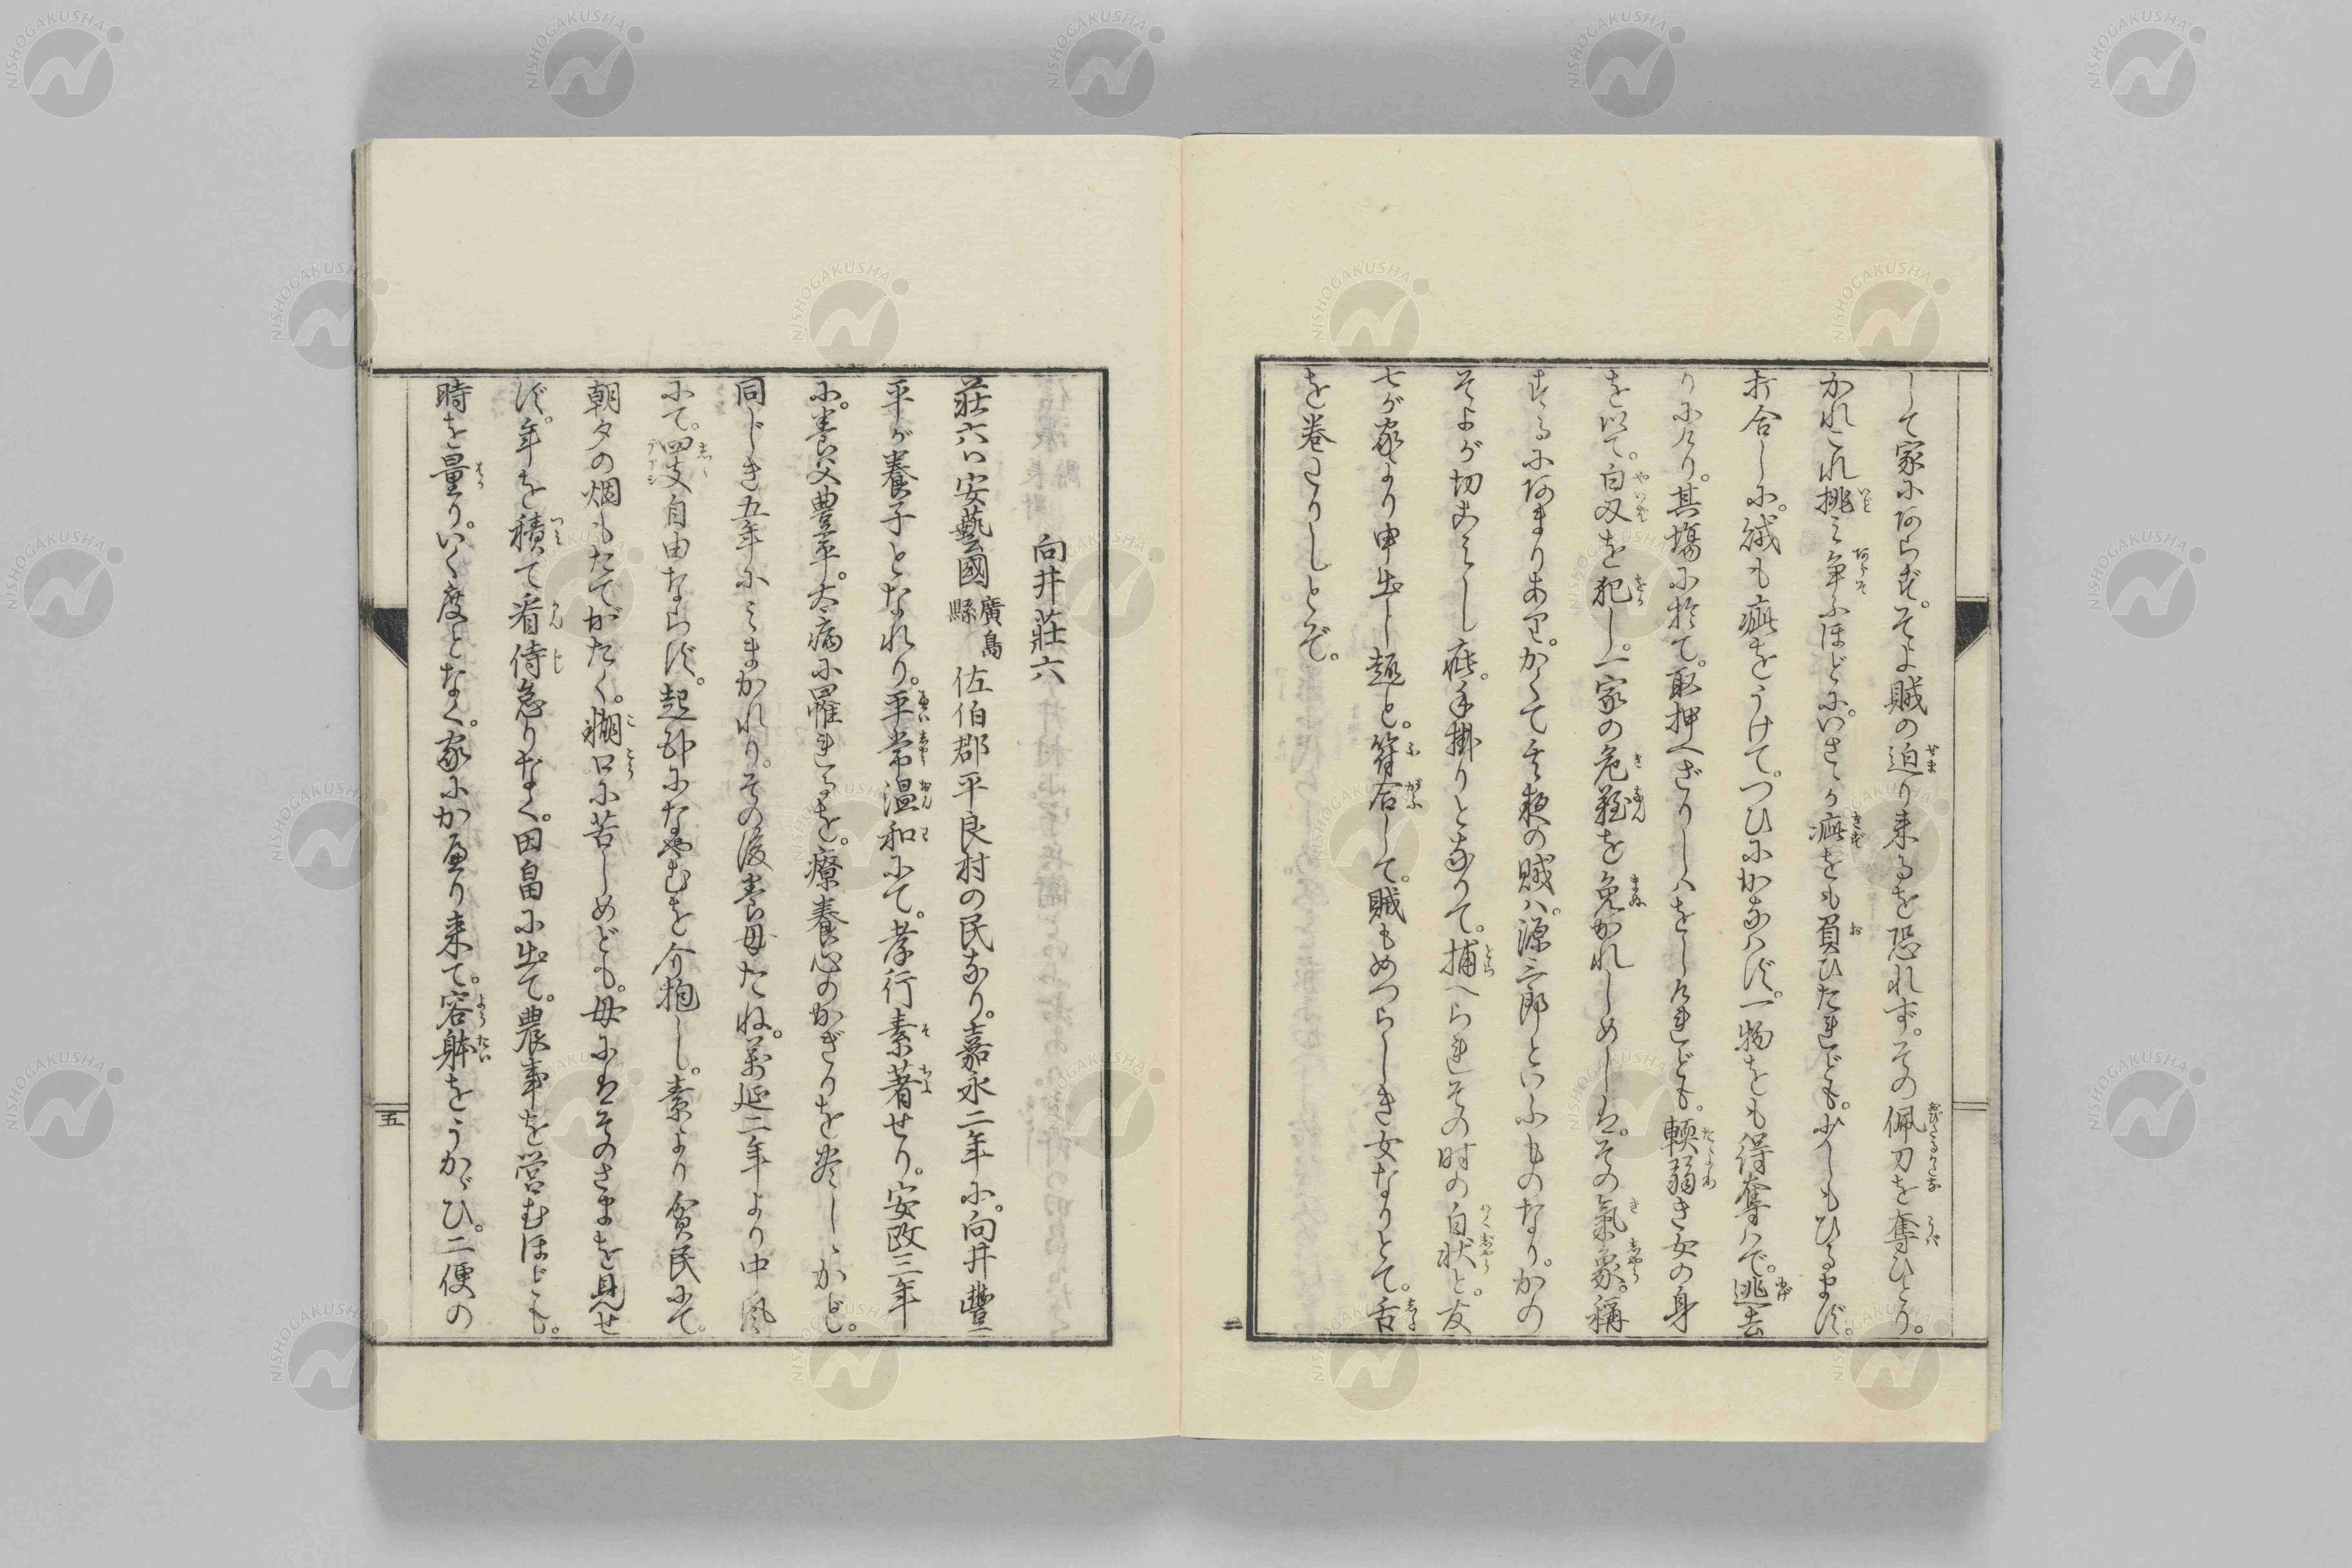 して家にあらず。そよ賊の迫り来るを恐れず。その佩刀を奪ひとり。
かれこれ挑み争ふほどに。いさゝか疵をも負ひたれども。少しもひるまず。
打合しに。絨も疵をうけて。つひにかなはず。一物をも得奪はで。逃去
りにけり。其場に於て。取押へざりしハをしけれども。輭弱き女の身
を以て。白刄を犯し。一家の危難を免かれしめしは。その氣象。稱
するにあまりあり。かくて其夜の賊ハ。源三郎といふものなり。かの
そよが切こみし疵。手掛りとなりて。捕へられその時の白状と。友
七が家より申出し趣と。符合して。賊もめづらしき女なりとて。舌
を巻たりしとぞ。
向井莊六
莊六ハ安藝國廣島縣佐伯郡平良村の民なり。嘉永二年に。向井豐
平が養子となれり。平常温和にて。孝行素著せり。安政三年
に。養父豊平。大病に罹れるを。療養心のかぎりを盡しゝかど。
同じき五年にみまかれり。その後養母たね。萬延二年より中風
にて。四支自由ならず。起卧になやむを介抱し。素より貧民にて。
朝夕の烟もたてがたく。糊口に苦しめども。母にはそのさまを見せ
ず。年を積て看侍怠りなく。田畠に出て。農事を営むほども。
時を量り。いく度となく。家にかへり来て。容躰をうかゞひ。二便の
五